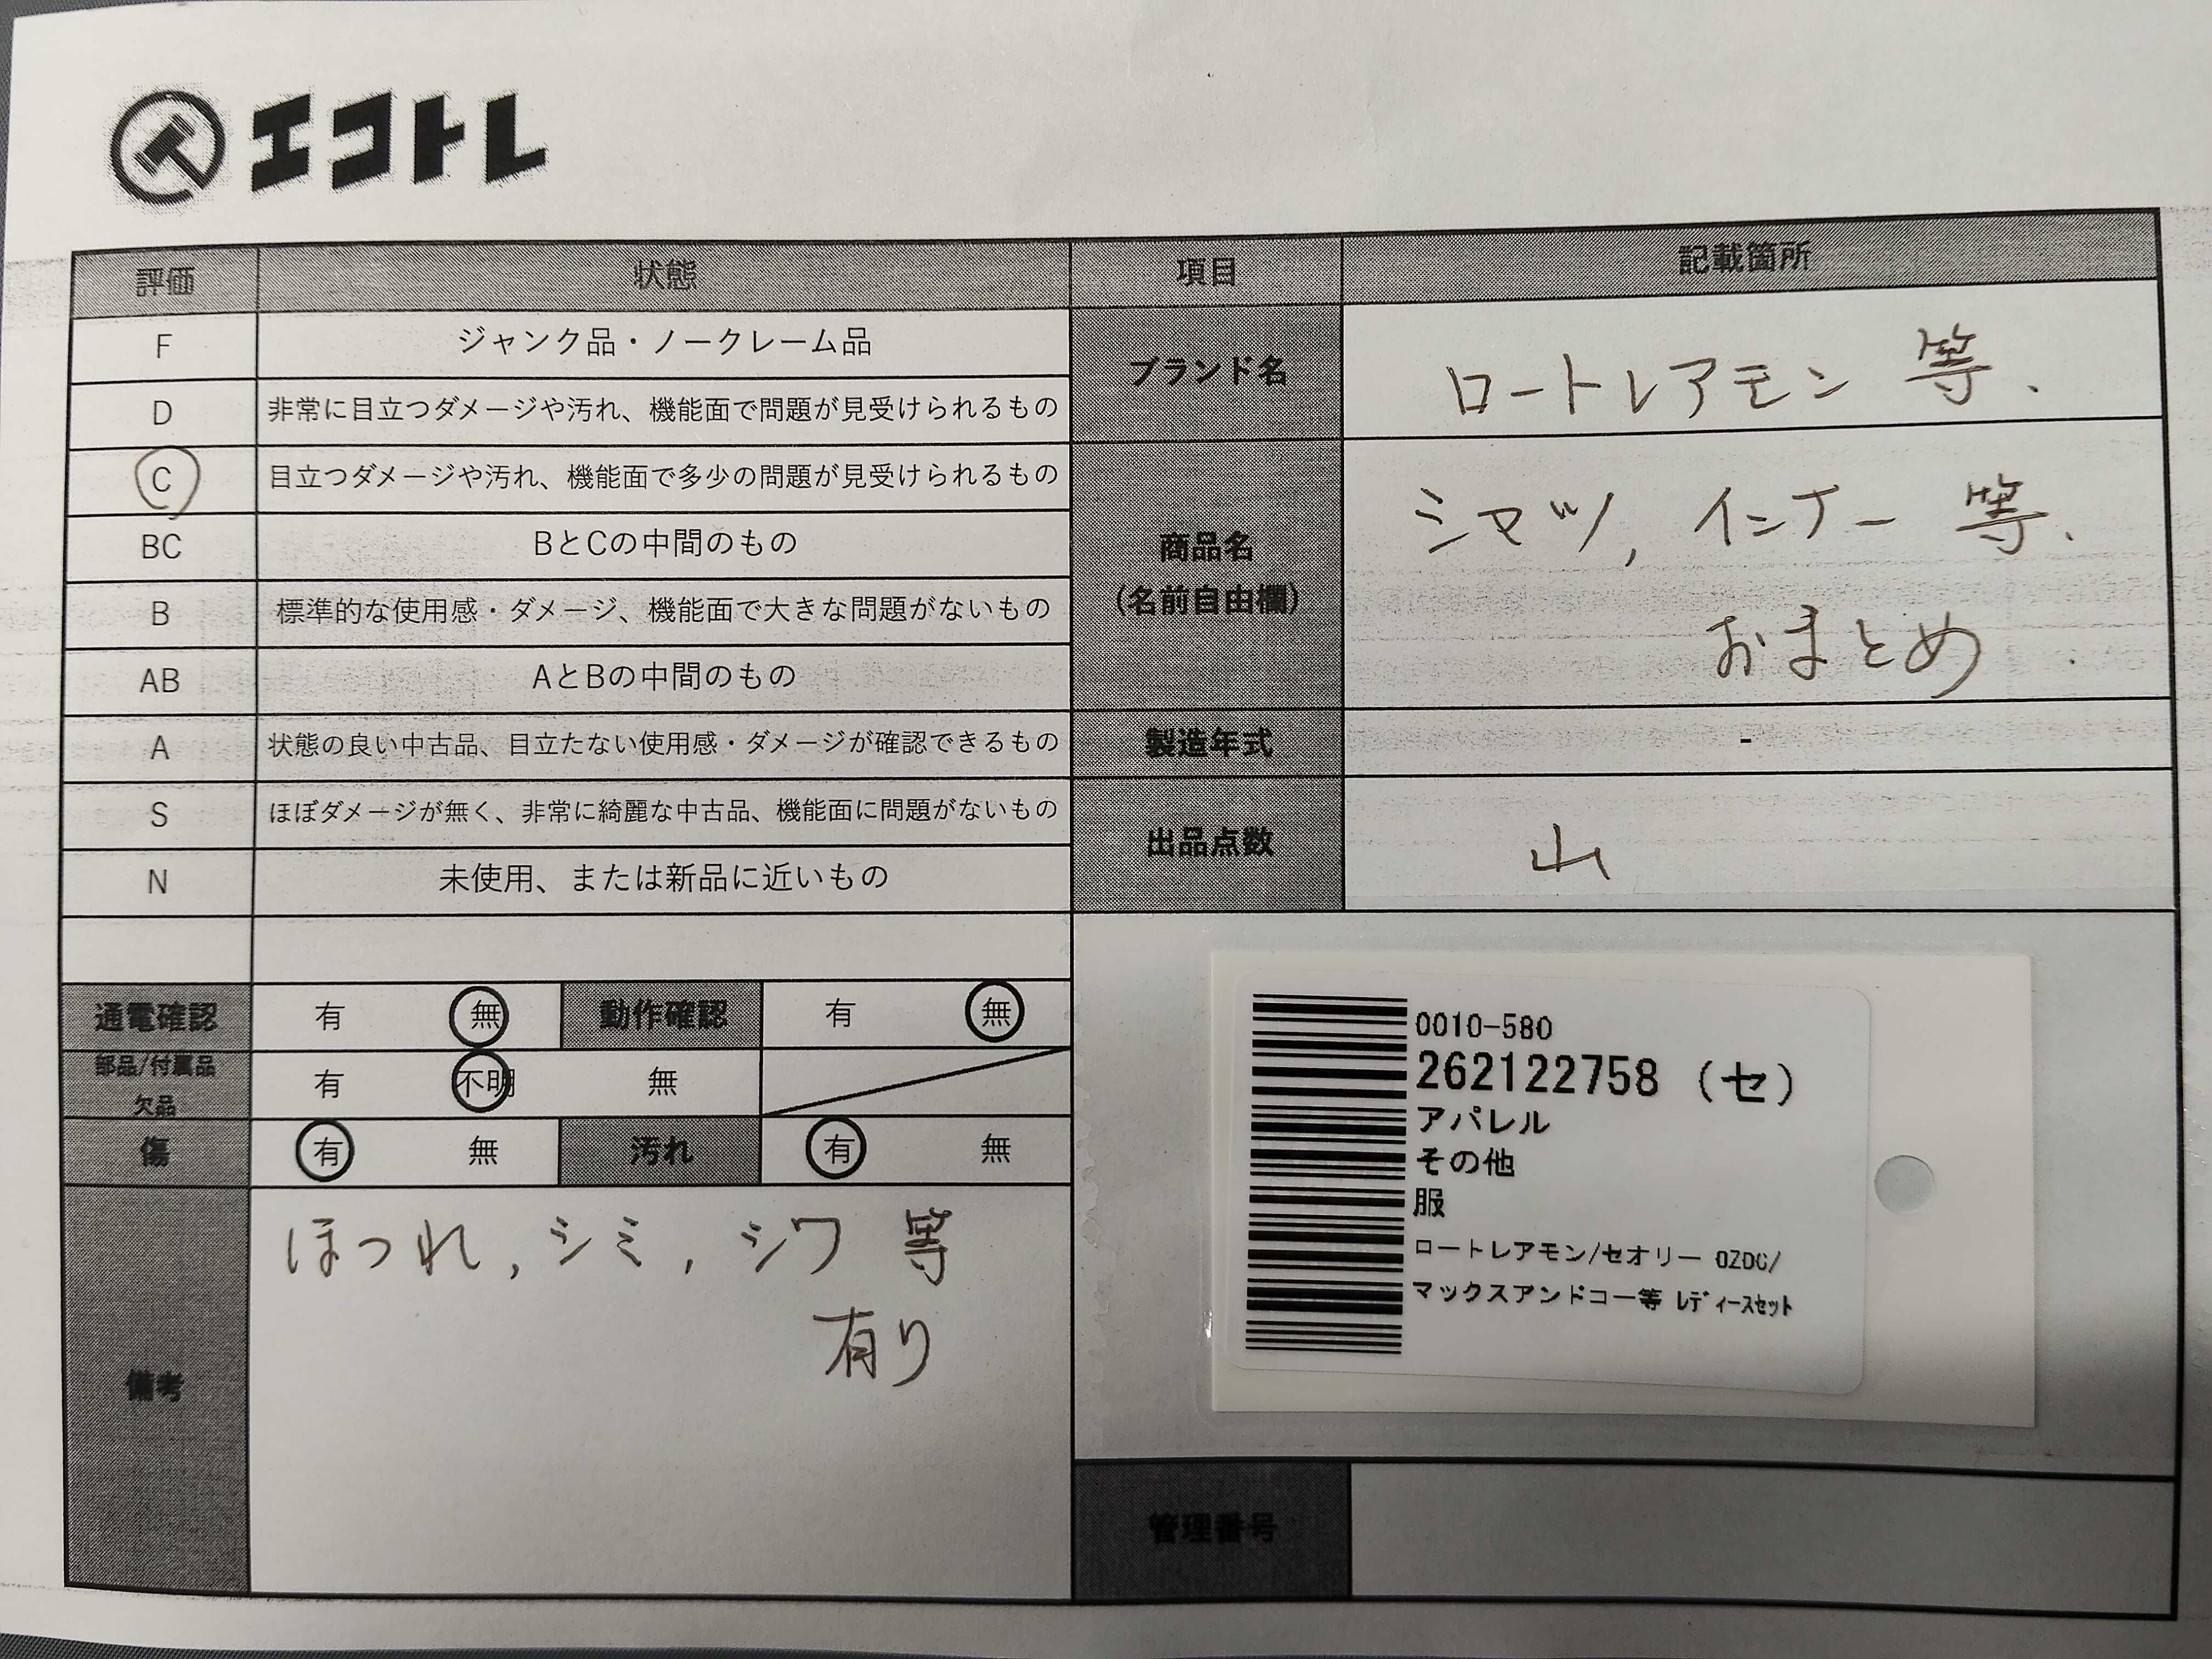 エコトレ
評価 状態 項目 記載箇所
F ジャンク品・ノークレーム品
D 非常に目立つダメージや汚れ、機能面で問題が見受けられるもの
C 目立つダメージや汚れ、機能面で多少の問題が見受けられるもの
BC BとCの中間のもの
B 標準的な使用感・ダメージ、機能面で大きな問題がないもの
AB AとBの中間のもの
A 状態の良い中古品、目立たない使用感・ダメージが確認できるもの
S ほぼダメージが無く、非常に綺麗な中古品、機能面に問題がないもの
N 未使用、または新品に近いもの
ブランド名 ロートレアモン 等.
商品名
(名前自由欄)
シャツ, インナー 等.
おまとめ
製造年式 -
出品点数 山
通電確認 有 無 動作確認 有 無
部品/付属品
欠品
有 不明 無
傷 有 無 汚れ 有 無
備考
ほつれ, シミ, シワ 等
有り
0010-580
262122758 (セ)
アパレル
その他
服
ロートレアモン/セオリー OZOC/
マックスアンドコー等 レディースセット
管理番号